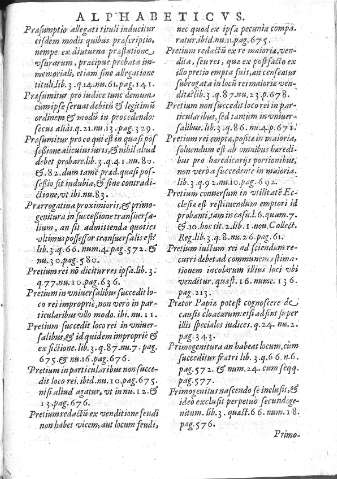 ALPHABETICVS.
Præsumptio allegati tituli inducitur
eisdem modis quibus præscriptio,
nempe ex diuturna præstatione
vsurarum, præcipuè probata im-
memoriali, etiam sine allegatione
tituli. lib. 3. q. 14. nu. 61. pag. 143.
Præsumitur pro iudice tunc demum
cum ipse seruat debitū & legitimū
ordinem & modū in procedendo:
secus aliàs. q. 21. nu. 13. pag. 329.
Præsumitur pro eo qui est in quasi pos-
sessione alicuius iuris, & nihil aliud
debet probare. lib. 3. q. 41. nu. 80.
& 82. dum tamē præd. quasi pos-
sessio sit indubia, & sine contradi-
ctione, vt ibi. nu. 83.
Prærogatiua proximioris, & primo-
genitura in successione transuersa-
lium, an sit admittenda quoties
vltimus possessor transuersalis est?
lib. 3. q. 66. num. 4. pag. 572. &
nu. 30. pag. 580.
Pretium rei nō dicitur res ipsa. lib. 3.
q. 77. nu. 10. pag. 636.
Pretium in vniuersalibus succedit lo-
co rei improprii, non verò in par-
ticularibus vllo modo. ibi. nu. 11.
Pretium succedit loco rei in vniuer-
salibus, & id quidem impropriè &
ex fictione. lib. 3. q. 87. nu. 7. pag.
675. & nu. 16. pag. 676.
Pretium in particularibus non succe-
dit loco rei. ibid. nu. 10. pag. 675.
nisi aliud agatur, vt in nu. 12. &
13. pag. 676.
Pretium redactū ex venditione feudi
non habet vicem, aut locum feudi,
nec quod ex ipsa pecunia compa-
ratur. ibid. nu. 11. pag. 675.
Pretium redactū ex re maioria, ven-
dita, seu res, qua ex postfacto ex
illo pretio empta sint, an censeatur
subrogata in locū rei maioria ven-
dita? lib. 3. q. 87. nu. 23. p. 678.
Pretium non succedit loco rei in par-
ticularibus, sed tantùm in vniuer-
salibus. lib. 3. q. 86. nu. 4. p. 671.
Pretium rei empta, posita in maioria,
soluendum est ab omnibus haredi-
bus pro hæredicariis portionibus,
non verò à succedente in maioria.
lib. 3. q. 92. nu. 10. pag. 692.
Pretium conuersum in vtilitatē Ec-
clesiæ est restituendum emptori id
probanti, tam in casu. l. 6. quam. 7.
& 10. hoc tit. 2. lib. 1. nou. Collect.
Reg. lib. 3. q. 8. nu. 26. pag. 61.
Pretium iustum rei ad sciendum re-
curri debet ad communem æstima-
tionem incolarum illius loci vbi
venditur. quæst. 16. num. 136.
pag. 213.
Prætor Papiæ potest cognoscere de
causis cloacarum: etsi adsint super
illis speciales iudices. q. 24. nu. 2.
pag. 343.
Primogenitura an habeat locum, cùm
succeditur fratri lib. 3. q. 66. n. 6.
pag. 572. & num. 24. cum seqq.
pag. 577.
Primogenitus nascendo se inclusit, &
ideo exclusit perpetuo secundoge-
nitum. lib. 3. quæst. 66. num. 18.
pag. 576.
Primo-